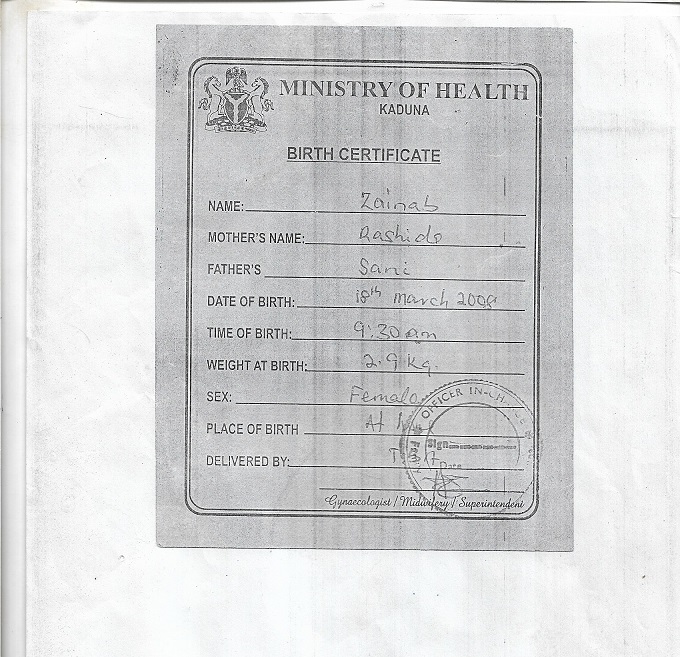 MINISTRY OF HEALTH
KADUNA
BIRTH CERTIFICATE
NAME: Zainab
MOTHER'S NAME: Rashida
FATHER'S Sani
DATE OF BIRTH: 18th March 2008
TIME OF BIRTH: 9:30 am
WEIGHT AT BIRTH: 2.9 Kg.
SEX: Female
OFFICER IN-CHARGE
PLACE OF BIRTH At
Sign
DELIVERED BY:
Date
Gynaecologist / Midwifery / Superintendent